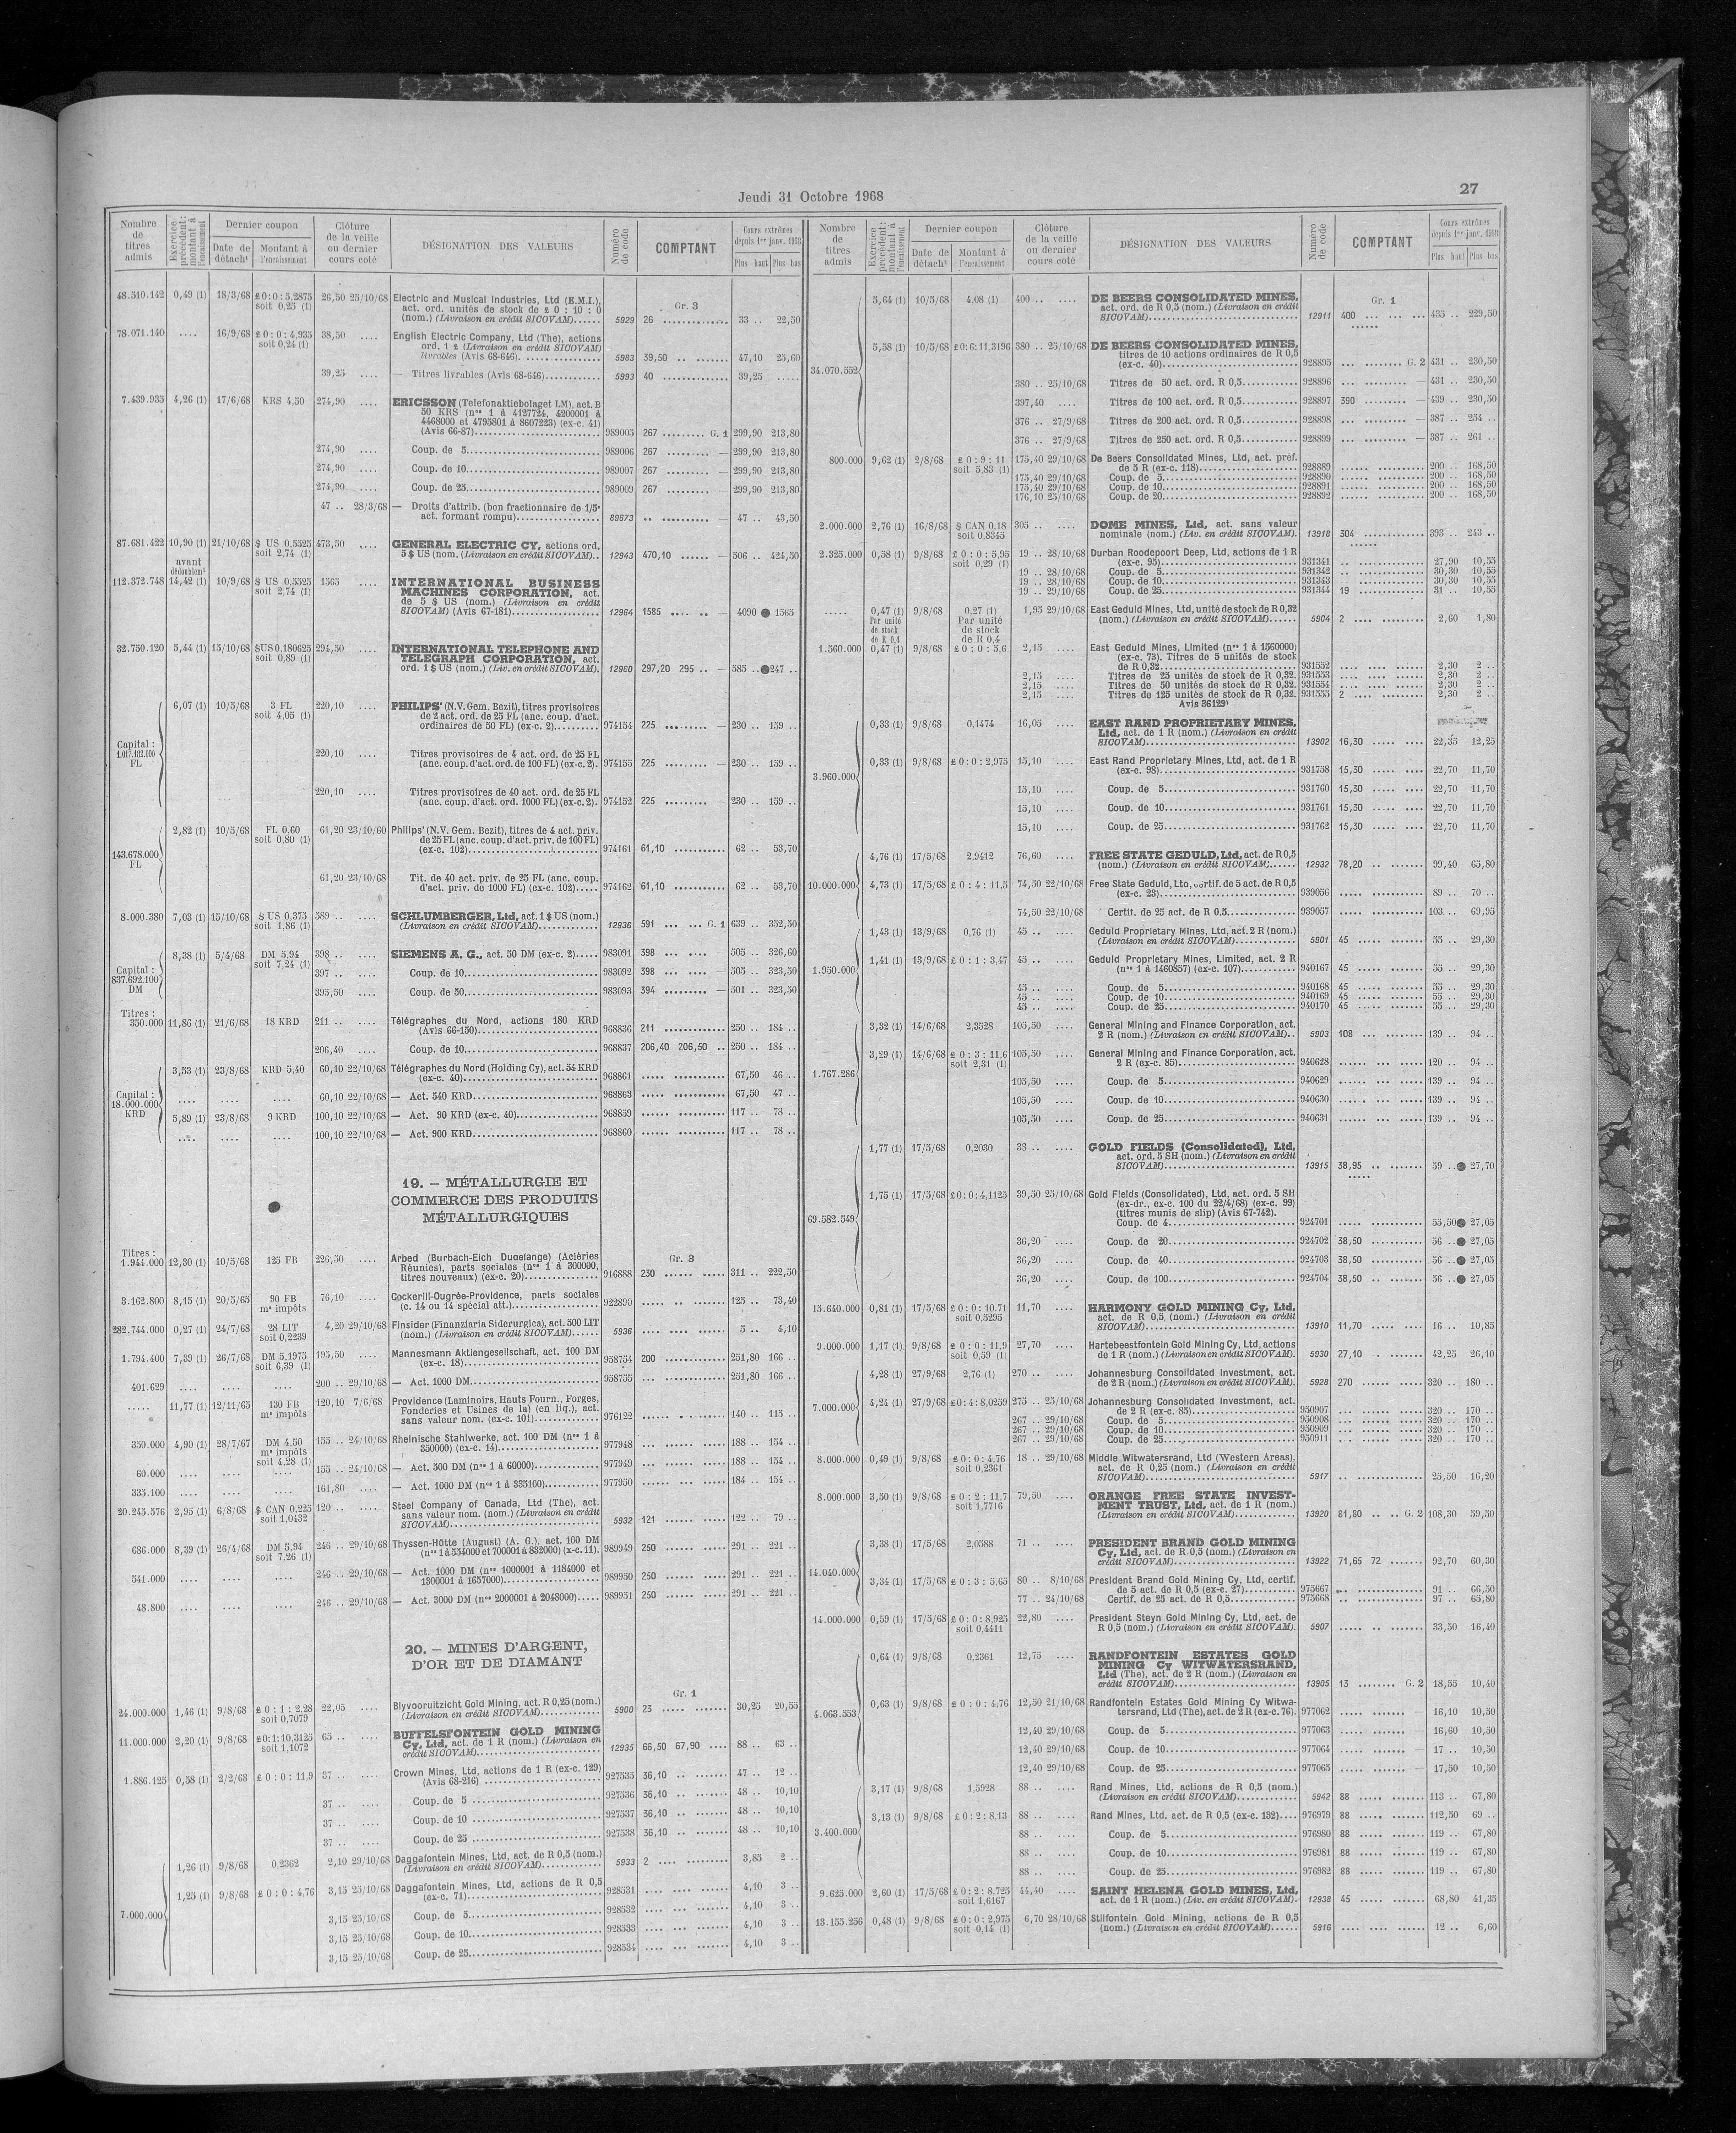 Jeudi 31 Octobre 1968
27
Nombre de titres admis
Exercice précédent: montant à l'encaissement
Dernier coupon
Date de détacht
Montant à l'encaissement
Clôture de la veille ou dernier cours coté
DÉSIGNATION DES VALEURS
Numéro de code
COMPTANT
Cours extrêmes depuis 1er janv. 1968
Plus haut Plus bas
48.510.142 0,49 (1) 18/3/68 £0:0:5,2875 26,50 25/10/68 Electric and Musical Industries, Ltd (E.M.I.),
soit 0,25 (1) act. ord. unités de stock de £ 0 : 10 : 0
Gr. 3
(nom.) (Livraison en crédit SICOVAM)...... 5929 26 33 .. 22,50
78.071.140 .... 16/9/68 £0:0:4,935 38,50 .... English Electric Company, Ltd (The), actions
soit 0,24 (1) ord. 1 £ (Livraison en crédit SICOVAM)
livrables (Avis 68-646). 5983 39,50 47,10 25,60
39,25 .... — Titres livrables (Avis 68-646) 5993 40 39,25 .....
7.439.935 4,26 (1) 17/6/68 KRS 4,50 274,90 .... ERICSSON (Telefonaktiebolaget LM), act. B
50 KRS (nos 1 à 4127724, 4200001 à
4468000 et 4795801 à 8607223) (ex-c. 41)
(Avis 66-87) 989005 267 G. 1 299,90 213,80
274,90 .... Coup. de 5 989006 267 — 299,90 213,80
274,90 .... Coup. de 10 989007 267 — 299,90 213,80
274,90 .... Coup. de 25 989009 267 — 299,90 213,80
47 .. 28/3/68 — Droits d'attrib. (bon fractionnaire de 1/5e
act. formant rompu) 89673 — 47 .. 43,50
87.681.422 10,90 (1) 21/10/68 $ US 0,5525 473,50 .... GENERAL ELECTRIC CY, actions ord.
soit 2,74 (1) 5 $ US (nom.) (Livraison en crédit SICOVAM). 12943 470,10 — 506 .. 424,50
avant dédoublemt
112.372.748 14,42 (1) 10/9/68 $ US 0,5525 1565 .... INTERNATIONAL BUSINESS
soit 2,74 (1) MACHINES CORPORATION, act.
de 5 $ US (nom.) (Livraison en crédit
SICOVAM) (Avis 67-181) 12964 1585 — 4090 ● 1565
32.750.120 5,44 (1) 15/10/68 $US0.180625 294,50 .... INTERNATIONAL TELEPHONE AND
soit 0,89 (1) TELEGRAPH CORPORATION, act.
ord. 1 $ US (nom.) (Liv. en crédit SICOVAM). 12960 297,20 295 .. — 585 ..●247 ..
Capital : 1.017.182.000 FL
6,07 (1) 10/5/68 3 FL 220,10 .... PHILIPS' (N.V. Gem. Bezit), titres provisoires
soit 4,05 (1) de 2 act. ord. de 25 FL (anc. coup. d'act.
ordinaires de 50 FL) (ex-c. 2) 974154 225 — 230 .. 159 ..
220,10 .... Titres provisoires de 4 act. ord. de 25 FL
(anc. coup. d'act. ord. de 100 FL) (ex-c. 2). 974155 225 — 230 .. 159 ..
220,10 .... Titres provisoires de 40 act. ord. de 25 FL
(anc. coup. d'act. ord. 1000 FL) (ex-c. 2). 974152 225 — 230 .. 159 ..
143.678.000 FL
2,82 (1) 10/5/68 FL 0,60 61,20 23/10/60 Philips' (N.V. Gem. Bezit), titres de 4 act. priv.
soit 0,80 (1) de 25 FL (anc. coup. d'act. priv. de 100 FL)
(ex-c. 102) 974161 61,10 62 .. 53,70
61,20 23/10/68 Tit. de 40 act. priv. de 25 FL (anc. coup.
d'act. priv. de 1000 FL) (ex-c. 102) 974162 61,10 62 .. 53,70
8.000.380 7,03 (1) 15/10/68 $ US 0,375 589 .. .... SCHLUMBERGER, Ltd, act. 1 $ US (nom.)
soit 1,86 (1) (Livraison en crédit SICOVAM) 12936 591 G. 1 639 .. 352,50
Capital : 837.692.100 DM
8,38 (1) 5/4/68 DM 5,94 398 .. .... SIEMENS A. G., act. 50 DM (ex-c. 2) 983091 398 — 505 .. 326,60
soit 7,24 (1)
397 .. .... Coup. de 10 983092 398 — 505 .. 323,50
395,50 .... Coup. de 50 983093 394 — 501 .. 323,50
Titres : 350.000 11,86 (1) 21/6/68 18 KRD 211 .. .... Télégraphes du Nord, actions 180 KRD
(Avis 66-150) 968836 211 250 .. 184 ..
206,40 .... Coup. de 10 968837 206,40 206,50 .. 250 .. 184 ..
Capital : 18.000.000 KRD
3,53 (1) 23/8/68 KRD 5,40 60,10 22/10/68 Télégraphes du Nord (Holding Cy), act. 54 KRD
(ex-c. 40) 968861 67,50 46 ..
60,10 22/10/68 — Act. 540 KRD 968863 67,50 47 ..
5,89 (1) 23/8/68 9 KRD 100,10 22/10/68 — Act. 90 KRD (ex-c. 40) 968859 117 .. 78 ..
100,10 22/10/68 — Act. 900 KRD 968860 117 .. 78 ..
19. — MÉTALLURGIE ET
COMMERCE DES PRODUITS
MÉTALLURGIQUES
Gr. 3
Titres : 1.944.000 12,30 (1) 10/5/68 125 FB 226,50 .... Arbed (Burbach-Eich Dudelange) (Aciéries
Réunies), parts sociales (nos 1 à 300000,
titres nouveaux) (ex-c. 20) 916888 230 311 .. 222,50
3.162.800 8,15 (1) 20/5/65 90 FB 76,10 .... Cockerill-Ougrée-Providence, parts sociales
ms impôts (c. 14 ou 14 spécial att.) 922890 125 .. 73,40
282.744.000 0,27 (1) 24/7/68 28 LIT 4,20 29/10/68 Finsider (Finanziaria Siderurgica), act. 500 LIT
soit 0,2239 (nom.) (Livraison en crédit SICOVAM) 5936 5 .. 4,10
1.794.400 7,39 (1) 26/7/68 DM 5,1975 195,50 .... Mannesmann Aktiengesellschaft, act. 100 DM
soit 6,39 (1) (ex-c. 18) 958754 200 251,80 166 ..
401.629 .... .... .... 200 .. 29/10/68 — Act. 1000 DM 958755 251,80 166 ..
..... 11,77 (1) 12/11/65 130 FB 120,10 7/6/68 Providence (Laminoirs, Hauts Fourn., Forges,
ms impôts Fonderies et Usines de la) (en liq.), act.
sans valeur nom. (ex-c. 101) 976122 140 .. 115 ..
350.000 4,90 (1) 28/7/67 DM 4,50 155 .. 24/10/68 Rheinische Stahlwerke, act. 100 DM (nos 1 à
ms impôts 350000) (ex-c. 14) 977948 188 .. 154 ..
soit 4,28 (1)
60.000 .... .... .... 155 .. 24/10/68 — Act. 500 DM (nos 1 à 60000) 977949 188 .. 154 ..
335.100 .... .... .... 161,80 .... — Act. 1000 DM (nos 1 à 335100) 977950 184 .. 154 ..
20.245.576 2,95 (1) 6/8/68 $ CAN 0,225 120 .. .... Steel Company of Canada, Ltd (The), act.
soit 1,0432 sans valeur nom. (nom.) (Livraison en crédit
SICOVAM) 5932 121 122 .. 79 ..
686.000 8,39 (1) 26/4/68 DM 5,94 246 .. 29/10/68 Thyssen-Hütte (August) (A. G.), act. 100 DM
soit 7,26 (1) (nos 1 à 554000 et 700001 à 832000) (x-c. 11). 989949 250 291 .. 221 ..
541.000 .... .... .... 246 .. 29/10/68 — Act. 1000 DM (nos 1000001 à 1184000 et
1300001 à 1657000) 989950 250 291 .. 221 ..
48.800 .... .... .... 246 .. 29/10/68 — Act. 3000 DM (nos 2000001 à 2048000) 989951 250 291 .. 221 ..
20. — MINES D'ARGENT,
D'OR ET DE DIAMANT
Gr. 1
24.000.000 1,46 (1) 9/8/68 £0:1:2,28 22,05 .... Blyvooruitzicht Gold Mining, act. R 0,25 (nom.)
soit 0,7079 (Livraison en crédit SICOVAM) 5900 23 30,25 20,55
11.000.000 2,20 (1) 9/8/68 £0:1:10,3125 65 .. .... BUFFELSFONTEIN GOLD MINING
soit 1,1072 Cy, Ltd, act. de 1 R (nom.) (Livraison en
crédit SICOVAM) 12935 66,50 67,90 88 .. 63 ..
1.886.125 0,58 (1) 2/2/68 £0:0:11,9 37 .. .... Crown Mines, Ltd, actions de 1 R (ex-c. 129)
(Avis 68-216) 927535 36,10 47 .. 12 ..
37 .. .... Coup. de 5 927536 36,10 48 .. 10,10
37 .. .... Coup. de 10 927537 36,10 48 .. 10,10
37 .. .... Coup. de 25 927538 36,10 48 .. 10,10
7.000.000
1,26 (1) 9/8/68 0,2362 2,10 29/10/68 Daggafontein Mines, Ltd, act. de R 0,5 (nom.)
(Livraison en crédit SICOVAM) 5933 2 3,85 2 ..
1,25 (1) 9/8/68 £0:0:4,76 3,15 25/10/68 Daggafontein Mines, Ltd, actions de R 0,5
(ex-c. 71) 928531 4,10 3 ..
3,15 25/10/68 Coup. de 5 928532 4,10 3 ..
3,15 25/10/68 Coup. de 10 928533 4,10 3 ..
3,15 25/10/68 Coup. de 25 928534 4,10 3 ..
Nombre de titres admis
Exercice précédent: montant à l'encaissement
Dernier coupon
Date de détacht
Montant à l'encaissement
Clôture de la veille ou dernier cours coté
DÉSIGNATION DES VALEURS
Numéro de code
COMPTANT
Cours extrêmes depuis 1er janv. 1968
Plus haut Plus bas
34.070.552
5,64 (1) 10/5/68 4,08 (1) 400 .. .... DE BEERS CONSOLIDATED MINES,
Gr. 1
act. ord. de R 0,5 (nom.) (Livraison en crédit
SICOVAM) 12911 400 435 .. 229,50
5,58 (1) 10/5/68 £0:6:11,3196 380 .. 25/10/68 DE BEERS CONSOLIDATED MINES,
titres de 10 actions ordinaires de R 0,5
(ex-c. 40) 928895 G. 2 431 .. 230,50
380 .. 25/10/68 Titres de 50 act. ord. R 0,5 928896 — 431 .. 230,50
397,40 .... Titres de 100 act. ord. R 0,5 928897 390 — 439 .. 230,50
376 .. 27/9/68 Titres de 200 act. ord. R 0,5 928898 — 387 .. 254 ..
376 .. 27/9/68 Titres de 250 act. ord. R 0,5 928899 — 387 .. 261 ..
800.000 9,62 (1) 2/8/68 £0:9:11 175,40 29/10/68 De Beers Consolidated Mines, Ltd, act. préf.
soit 5,83 (1) de 5 R (ex-c. 118) 928889 200 .. 168,50
175,40 29/10/68 Coup. de 5 928890 200 .. 168,50
175,40 29/10/68 Coup. de 10 928891 200 .. 168,50
176,10 25/10/68 Coup. de 20 928892 200 .. 168,50
2.000.000 2,76 (1) 16/8/68 $ CAN 0,18 305 .. .... DOME MINES, Ltd, act. sans valeur
soit 0,8345 nominale (nom.) (Liv. en crédit SICOVAM). 13918 304 393 .. 243 ..
2.325.000 0,58 (1) 9/8/68 £0:0:5,95 19 .. 28/10/68 Durban Roodepoort Deep, Ltd, actions de 1 R
soit 0,29 (1) (ex-c. 95) 931341 27,90 10,55
19 .. 28/10/68 Coup. de 5 931342 30,30 10,55
19 .. 28/10/68 Coup. de 10 931343 30,30 10,55
19 .. 29/10/68 Coup. de 25 931344 19 31 .. 10,55
..... 0,47 (1) 9/8/68 0,27 (1) 1,95 29/10/68 East Geduld Mines, Ltd, unité de stock de R 0,32
Par unité de stock de R 0,4 Par unité de stock de R 0.4 (nom.) (Livraison en crédit SICOVAM) 5904 2 2,60 1,80
1.560.000 0,47 (1) 9/8/68 £0:0:5,6 2,15 .... East Geduld Mines, Limited (nos 1 à 1560000)
(ex-c. 73). Titres de 5 unités de stock
de R 0,32 931552 2,30 2 ..
2,15 .... Titres de 25 unités de stock de R 0,32. 931553 2,30 2 ..
2,15 .... Titres de 50 unités de stock de R 0,32. 931554 2,30 2 ..
2,15 .... Titres de 125 unités de stock de R 0,32. 931555 2 2,30 2 ..
Avis 36129
3.960.000
0,33 (1) 9/8/68 0,1474 16,05 .... EAST RAND PROPRIETARY MINES,
Ltd, act. de 1 R (nom.) (Livraison en crédit
SICOVAM) 13902 16,30 22,35 12,25
0,33 (1) 9/8/68 £0:0:2,975 15,10 .... East Rand Proprietary Mines, Ltd, act. de 1 R
(ex-c. 98) 931758 15,30 22,70 11,70
15,10 .... Coup. de 5 931760 15,30 22,70 11,70
15,10 .... Coup. de 10 931761 15,30 22,70 11,70
15,10 .... Coup. de 25 931762 15,30 22,70 11,70
10.000.000
4,76 (1) 17/5/68 2,9412 76,60 .... FREE STATE GEDULD, Ltd, act. de R 0,5
(nom.) (Livraison en crédit SICOVAM) 12932 78,20 99,40 65,80
4,73 (1) 17/5/68 £0:4:11,5 74,50 22/10/68 Free State Geduld, Ltd, certif. de 5 act. de R 0,5
(ex-c. 23) 939056 89 .. 70 ..
74,50 22/10/68 Certif. de 25 act. de R 0,5 939057 103 .. 69,95
1.950.000
1,43 (1) 13/9/68 0,76 (1) 45 .. .... Geduld Proprietary Mines, Ltd, act. 2 R (nom.)
(Livraison en crédit SICOVAM) 5901 45 55 .. 29,30
1,41 (1) 13/9/68 £0:1:3,47 45 .. .... Geduld Proprietary Mines, Limited, act. 2 R
(nos 1 à 1460857) (ex-c. 107) 940167 45 55 .. 29,30
45 .. .... Coup. de 5 940168 45 55 .. 29,30
45 .. .... Coup. de 10 940169 45 55 .. 29,30
45 .. .... Coup. de 25 940170 45 55 .. 29,30
1.767.286
3,32 (1) 14/6/68 2,3528 105,50 .... General Mining and Finance Corporation, act.
2 R (nom.) (Livraison en crédit SICOVAM) 5903 108 139 .. 94 ..
3,29 (1) 14/6/68 £0:3:11,6 105,50 .... General Mining and Finance Corporation, act.
soit 2,31 (1) 2 R (ex-c. 85) 940628 120 .. 94 ..
105,50 .... Coup. de 5 940629 139 .. 94 ..
105,50 .... Coup. de 10 940630 139 .. 94 ..
105,50 .... Coup. de 25 940631 139 .. 94 ..
69.582.549
1,77 (1) 17/5/68 0,2030 38 .. .... GOLD FIELDS (Consolidated), Ltd,
act. ord. 5 SH (nom.) (Livraison en crédit
SICOVAM) 13915 38,95 59 ..● 27,70
1,75 (1) 17/5/68 £0:0:4,1125 39,50 25/10/68 Gold Fields (Consolidated), Ltd, act. ord. 5 SH
(ex-dr., ex-c. 100 du 22/4/68) (ex-c. 99)
(titres munis de slip) (Avis 67-742).
Coup. de 4 924701 55,50● 27,05
36,20 .... Coup. de 20 924702 38,50 56 ..● 27,05
36,20 .... Coup. de 40 924703 38,50 56 ..● 27,05
36,20 .... Coup. de 100 924704 38,50 56 ..● 27,05
15.640.000 0,81 (1) 17/5/68 £0:0:10,71 11,70 .... HARMONY GOLD MINING Cy, Ltd,
soit 0,5295 act. de R 0,5 (nom.) (Livraison en crédit
SICOVAM) 13910 11,70 16 .. 10,85
9.000.000 1,17 (1) 9/8/68 £0:0:11,9 27,70 .... Hartebeestfontein Gold Mining Cy, Ltd, actions
soit 0,59 (1) de 1 R (nom.) (Livraison en crédit SICOVAM) 5930 27,10 42,25 26,10
7.000.000
4,28 (1) 27/9/68 2,76 (1) 270 .. .... Johannesburg Consolidated Investment, act.
de 2 R (nom.) (Livraison en crédit SICOVAM). 5928 270 320 .. 180 ..
4,24 (1) 27/9/68 £0:4:8,0259 275 .. 25/10/68 Johannesburg Consolidated Investment, act.
de 2 R (ex-c. 85) 950907 320 .. 170 ..
267 .. 29/10/68 Coup. de 5 950908 320 .. 170 ..
267 .. 29/10/68 Coup. de 10 950909 320 .. 170 ..
267 .. 29/10/68 Coup. de 25 950911 320 .. 170 ..
8.000.000 0,49 (1) 9/8/68 £0:0:4,76 18 .. 29/10/68 Middle Witwatersrand, Ltd (Western Areas),
soit 0,2361 act. de R 0,25 (nom.) (Livraison en crédit
SICOVAM) 5917 25,50 16,20
8.000.000 3,50 (1) 9/8/68 £0:2:11,7 79,50 .... ORANGE FREE STATE INVEST-
soit 1,7716 MENT TRUST, Ltd, act. de 1 R (nom.)
(Livraison en crédit SICOVAM) 13920 81,80 G. 2 108,30 59,50
14.040.000
3,38 (1) 17/5/68 2,0588 71 .. .... PRESIDENT BRAND GOLD MINING
Cy, Ltd, act. de R 0,5 (nom.) (Livraison en
crédit SICOVAM) 13922 71,65 72 92,70 60,30
3,34 (1) 17/5/68 £0:3:5,65 80 .. 8/10/68 President Brand Gold Mining Cy, Ltd, certif.
de 5 act. de R 0,5 (ex-c. 27) 975667 91 .. 66,50
77 .. 24/10/68 Certif. de 25 act. de R 0,5 975668 97 .. 65,80
14.000.000 0,59 (1) 17/5/68 £0:0:8,925 22,80 .... President Steyn Gold Mining Cy, Ltd, act. de
soit 0,4411 R 0,5 (nom.) (Livraison en crédit SICOVAM). 5907 33,50 16,40
4.063.553
0,64 (1) 9/8/68 0,2361 12,75 .... RANDFONTEIN ESTATES GOLD
MINING Cy WITWATERSRAND,
Ltd (The), act. de 2 R (nom.) (Livraison en
crédit SICOVAM) 13905 13 G. 2 18,55 10,40
0,63 (1) 9/8/68 £0:0:4,76 12,50 21/10/68 Randfontein Estates Gold Mining Cy Witwa-
tersrand, Ltd (The), act. de 2 R (ex-c. 76). 977062 — 16,10 10,50
12,40 29/10/68 Coup. de 5 977063 — 16,60 10,50
12,40 29/10/68 Coup. de 10 977064 — 17 .. 10,50
12,40 29/10/68 Coup. de 25 977065 — 17,50 10,50
3.400.000
3,17 (1) 9/8/68 1,5928 88 .. .... Rand Mines, Ltd, actions de R 0,5 (nom.)
(Livraison en crédit SICOVAM) 5942 88 113 .. 67,80
3,13 (1) 9/8/68 £0:2:8,13 88 .. .... Rand Mines, Ltd. act. de R 0,5 (ex-c. 132) 976979 88 112,50 69 ..
88 .. .... Coup. de 5 976980 88 119 .. 67,80
88 .. .... Coup. de 10 976981 88 119 .. 67,80
88 .. .... Coup. de 25 976982 88 119 .. 67,80
9.625.000 2,60 (1) 17/5/68 £0:2:8,725 44,40 .... SAINT HELENA GOLD MINES, Ltd,
soit 1,6167 act. de 1 R (nom.) (Liv. en crédit SICOVAM). 12938 45 68,80 41,35
13.155.256 0,48 (1) 9/8/68 £0:0:2,975 6,70 28/10/68 Stilfontein Gold Mining, actions de R 0,5
soit 0,14 (1) (nom.) (Livraison en crédit SICOVAM) 5916 12 .. 6,60